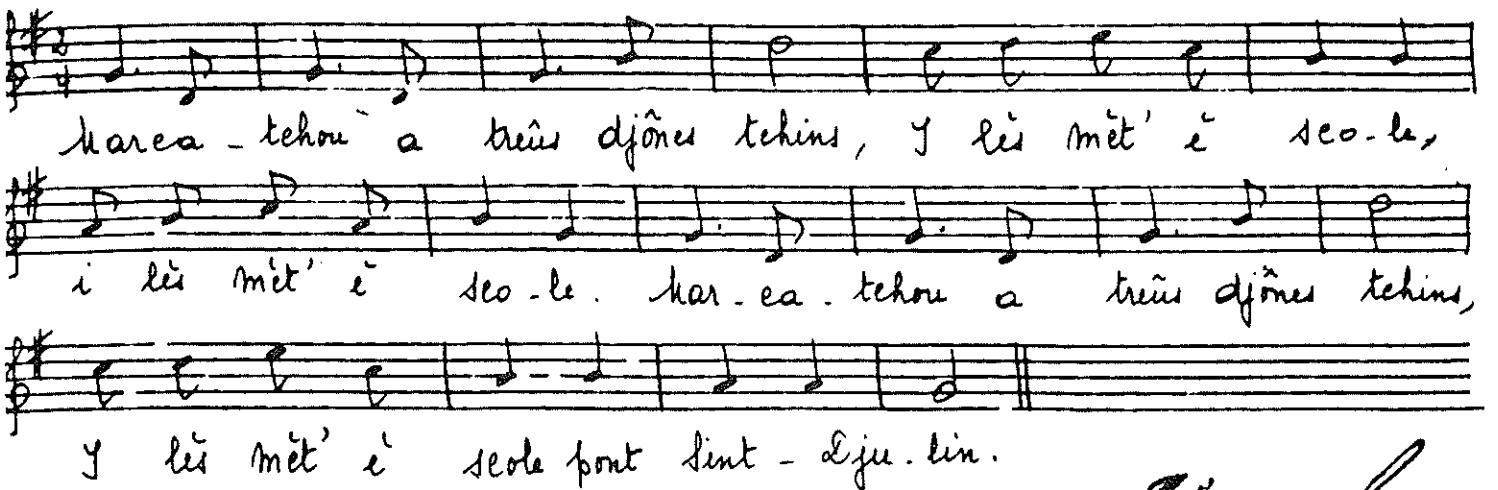 Marca - tchou a treûs djônes tchins, I lès mèt' è sco - le,
i lès mèt' è sco - le. Mar - ca - tchou a treûs djônes tchins,
I lès mèt' è scole pont Sint - Dju - lin.